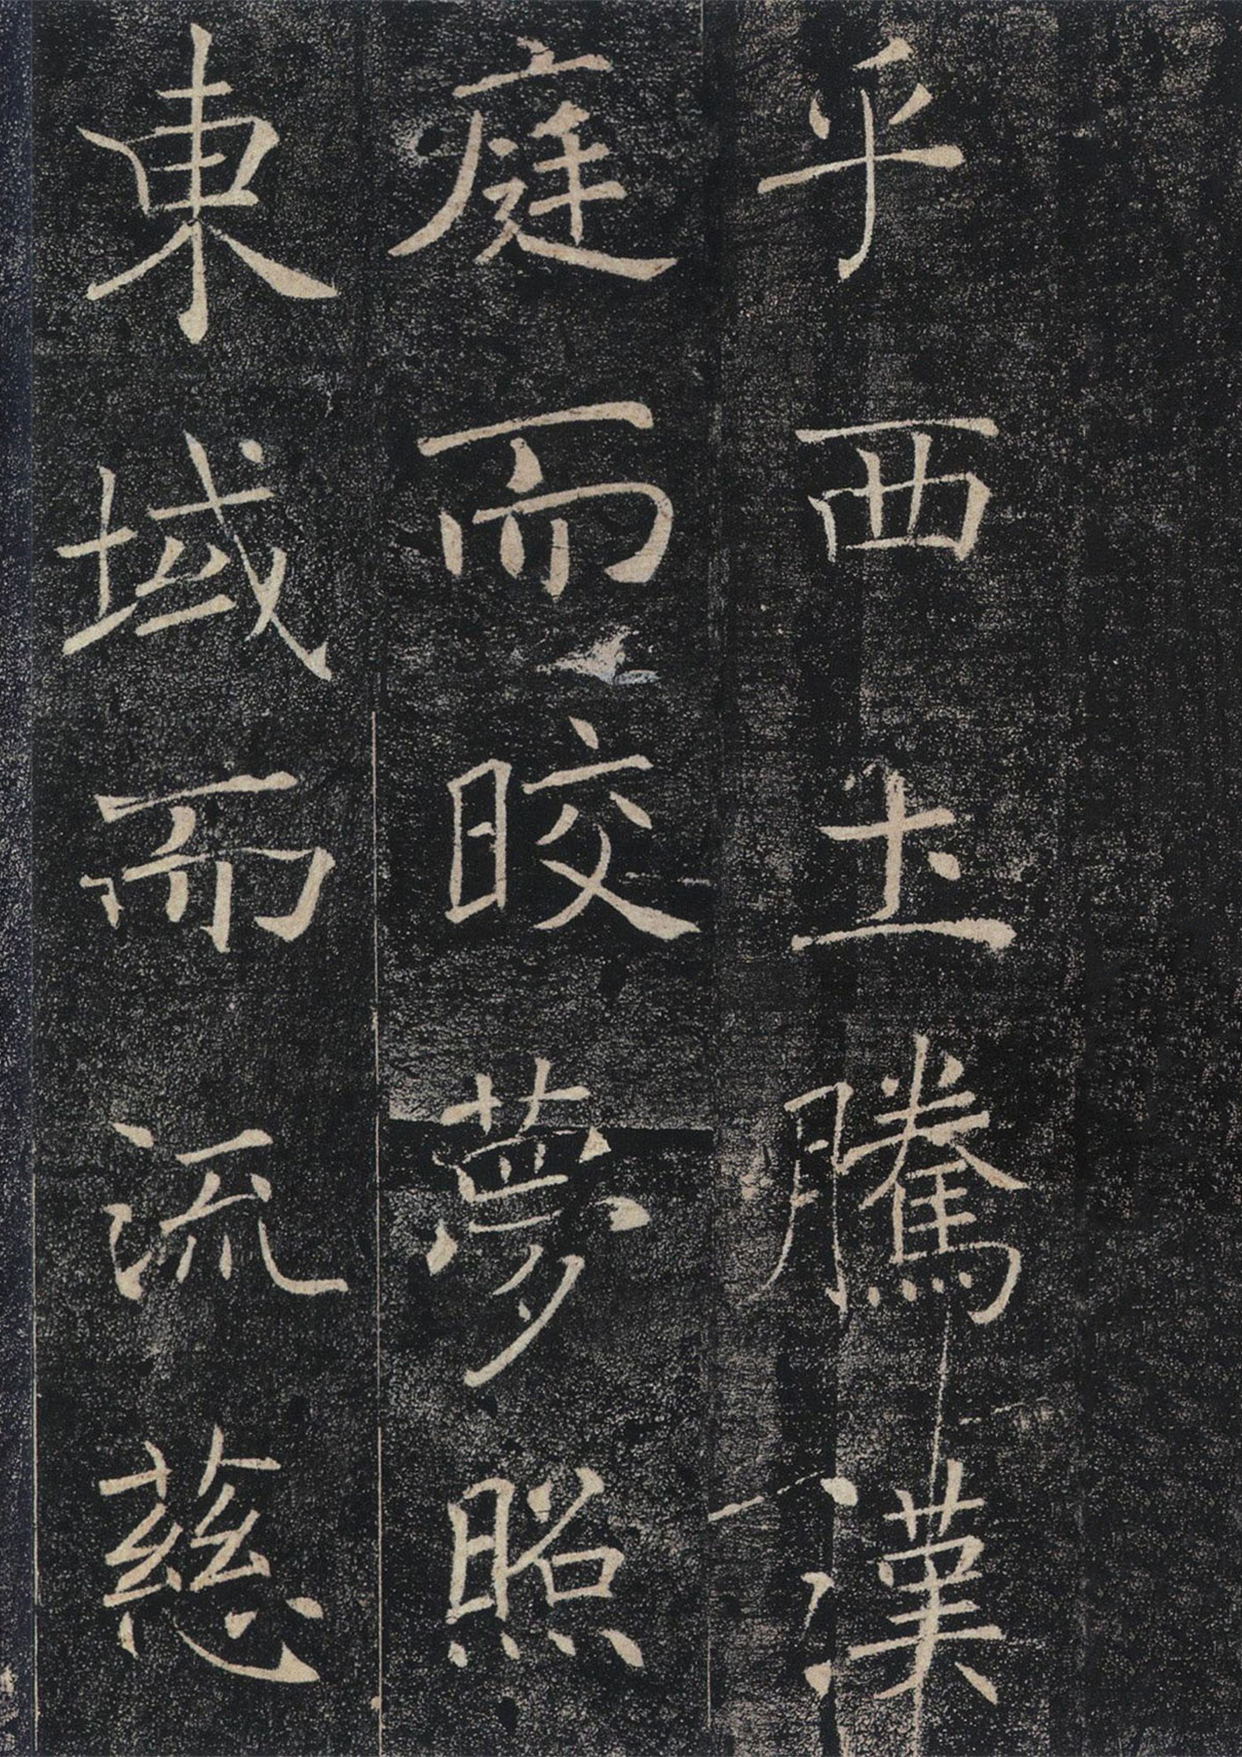 乎西圡騰漢
庭而晈夢照
東域而流慈